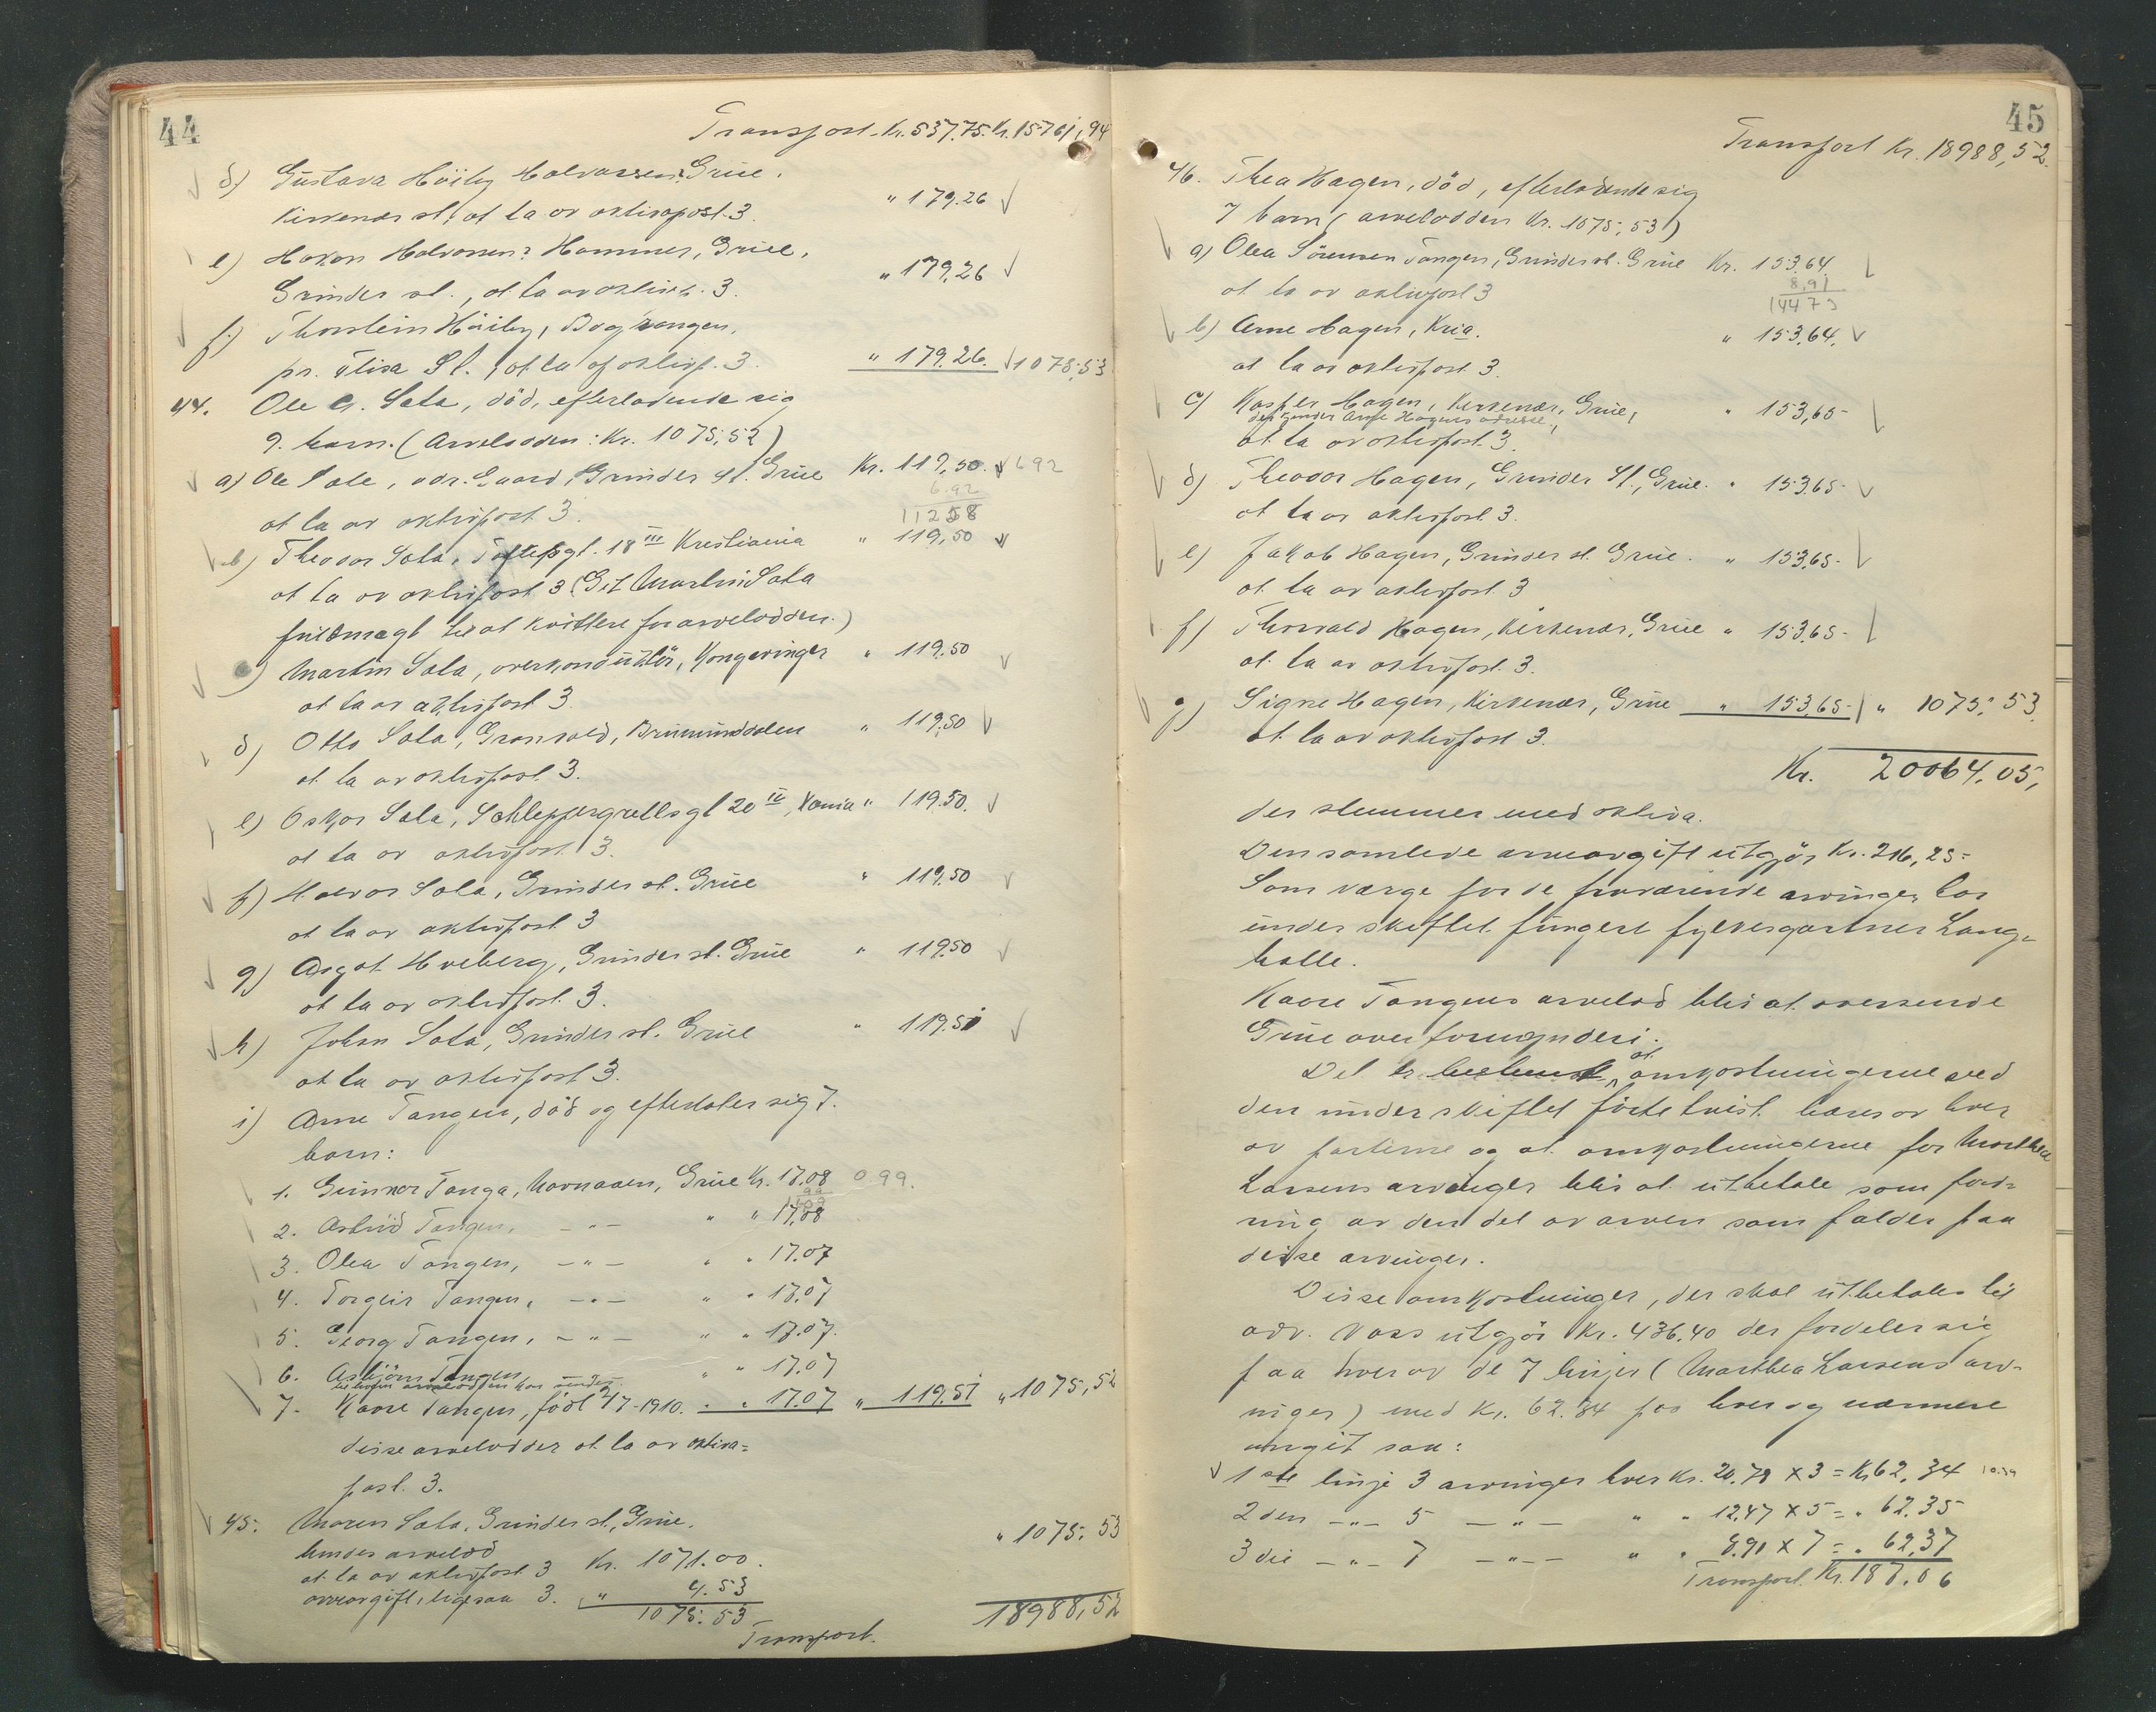 44
Transport Kr. 537.75. Kr. 15761,94
d) Gustava Höiby Halvorsen, Grue,
Kirkenær st., at ta av aktivapost. 3. " 179.26
e) Hakon Halvorsen? Hammer, Grue,
Grinder st., at ta av aktivp. 3. " 179,26
f.) Thorstein Höiby, Brandvangen,
pr. Flisa St., at ta af aktivp. 3. " 179,26. 1075,53
44. Ole G. Sata, död, efterladende sig
9. barn. (Arvelodden: Kr. 1075,52)
a) Ole Sata, adr. Gaard, Grinder st. Grue Kr. 119,50. 692
6.92
at ta av aktivpost 3. 11258
b) Theodor Sata, Toftesgt. 18 III Kristiania " 119,50
at ta av aktivpost 3 (Git Martin Sata
fuldmagt til at kvittere for arvelodden.)
c) Martin Sata, overkonduktör, Kongsvinger " 119.50
at ta av aktivpost 3.
d) Otto Sata, Granvold, Brumunddalen " 119,50
at ta av aktivpost 3.
e) Oskar Sata, Schleppegrellsgt 20 IV, Kania " 119.50.
at ta av aktivpost 3.
f) Halvor Sata, Grinder st. Grue " 119.50
at ta av aktivpost 3
g) Asgot Hveberg, Grinder st. Grue " 119.50
at ta av aktivpost 3.
h) Johan Sata, Grinder st. Grue " 119.51
at ta av aktivpost 3.
i) Arne Tangen, död og efterlater sig 7.
barn:
1. Gunnar Tanga, Navnaaen, Grue Kr. 17.08 0.99.
99
1609
2. Astrid Tangen, — " — " " 17,08
3. Olea Tangen, — " — " " 17.07
4. Torgeir Tangen, — " — " " 17.07
5. Georg Tangen, — " — " " 17.07.
6. Asbjörn Tangen " " 17.07
7. Kaare Tangen, född 2/7-1910. " " 17.07 " 119,51 " 1075,52
disse arvelodder at ta av aktiva-
post. 3.
45. Maren Sata, Grinder st., Grue. " 1075.53
hendes arvelod
at ta av aktivpost 3 Kr. 1071.00.
arveavgift, ligesaa 3. " 4.53
1075.53 18988,52
Transport.
45
Transport Kr. 18988,52.
46. Thea Hagen, död, efterladende sig
7 barn (arvelodden Kr. 1075,53)
a) Olea Sörensen Tangen, Grinder st. Grue Kr. 153,64.
8,91
at ta av aktivpost 3 14473
b) Arne Hagen, Kria. " 153,64.
at ta av aktivpost 3.
c) Kasper Hagen, Kirkenær, Grue, " 153,65
Arne Hagens adresse,
at ta av aktivpost 3.
d) Theodor Hagen, Grinder St., Grue. " 153.65
at ta av aktivpost 3.
e) Jakob Hagen, Grinder st. Grue. " 153,65
at ta av aktivpost 3
f) Thorvald Hagen, Kirkenær, Grue " 153,65
at ta av aktivpost 3.
g) Signe Hagen, Kirkenær, Grue " 153,65 " 1075,53
at ta av aktivpost 3.
Kr. 20064.05,
der stemmer med aktiva.
Den samlede arveavgift utgjör Kr. 216,25
Som værge for de fraværende arvinger har
under skiftet fungert fylkesgartner Lang-
balle.
Kaare Tangens arvelod blir at oversende
Grue overformynderi.
Det er bestemt at omkostningerne ved
den under skiftet förte tvist bæres av hver
av parterne og at omkostningerne for Marthea
Larsens arvinger blir at utbetale som ford-
ring av den del av arven som falder paa
disse arvinger.
Disse omkostninger, der skal utbetales til
adv. Vass utgjör Kr. 436.40 der fordeler sig
paa hver av de 7 linjer (Marthea Larsens arv-
inger) med Kr. 62.34 paa hver og nærmere
angit saa:
1ste linje 3 arvinger hver Kr. 20,78 x 3 = Kr 62,34
2den — " — 5 — " — " " 12,47 x 5 = " 62,35
3die — " — 7 — " — " " 8.91 x 7 = " 62,37
Transport. Kr. 187.06